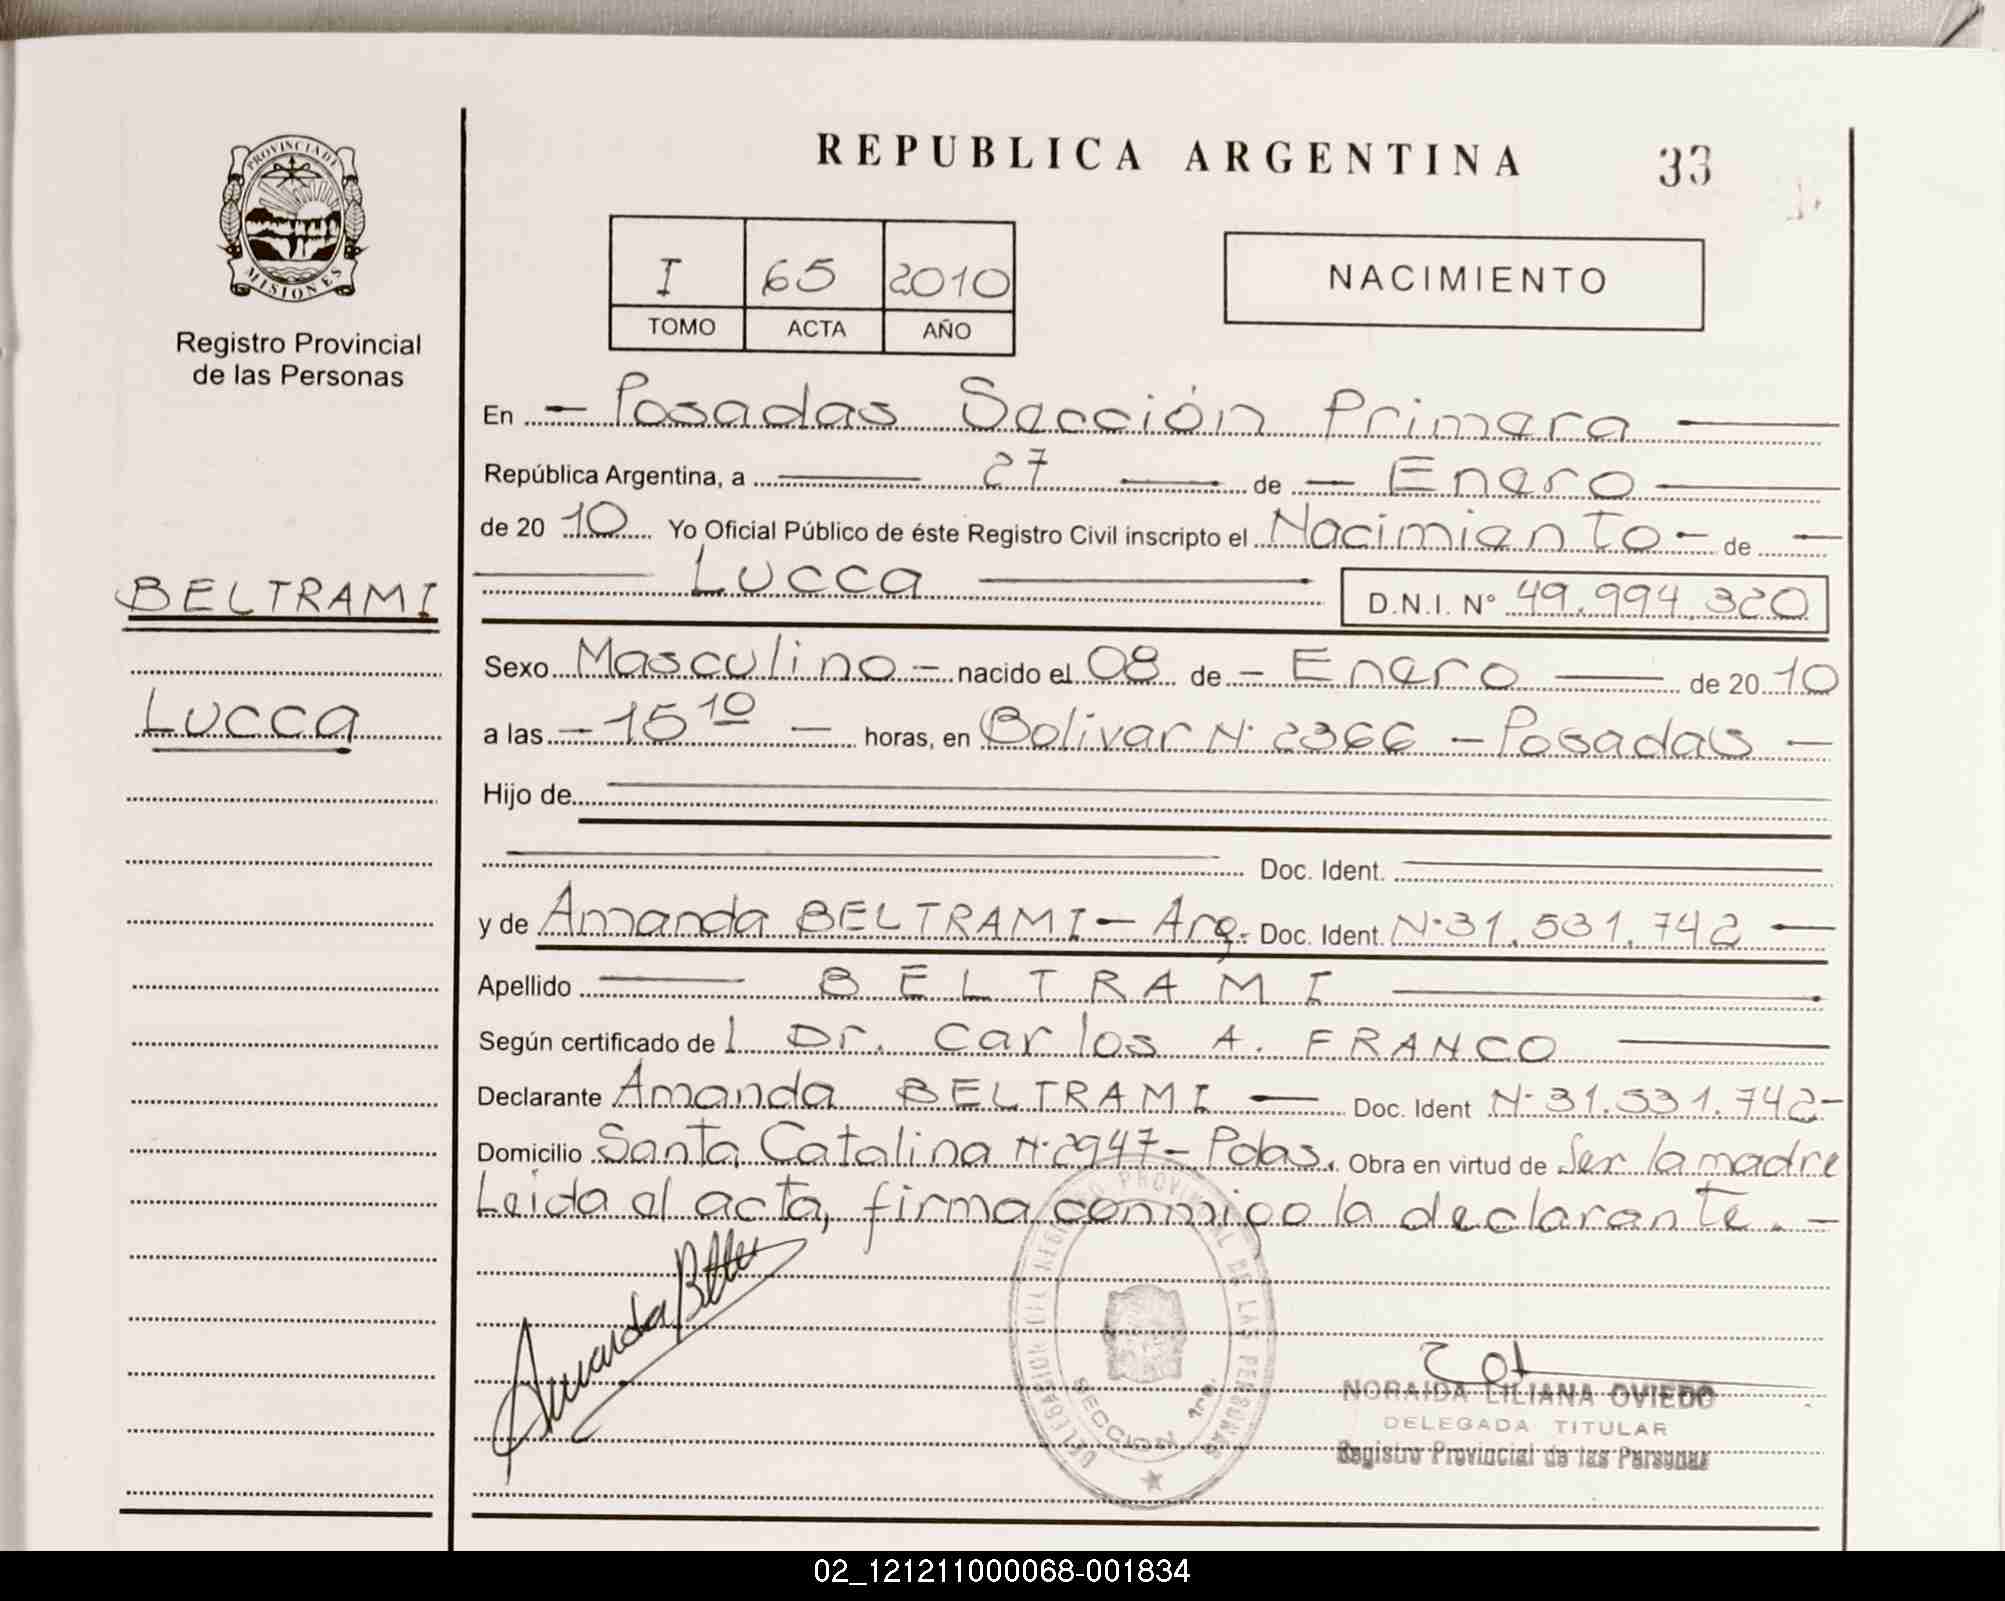 REPUBLICA ARGENTINA
33
PROVINCIA DE
MISIONES
Registro Provincial
de las Personas
I 65 2010
TOMO ACTA AÑO
NACIMIENTO
BELTRAMI
Lucca
En Posadas Sección Primera
República Argentina, a 27 de Enero
de 2010 Yo Oficial Público de éste Registro Civil inscripto el Nacimiento de
Lucca D.N.I. N° 49.994.320
Sexo Masculino nacido el 08 de Enero de 2010
a las 15 10 horas, en Bolivar N° 2366 - Posadas
Hijo de
Doc. Ident.
y de Amanda BELTRAMI - Arg. Doc. Ident. N° 31.531.742
Apellido BELTRAMI
Según certificado del Dr. Carlos A. FRANCO
Declarante Amanda BELTRAMI Doc. Ident N° 31.531.742
Domicilio Santa Catalina N° 2947 - Pdas. Obra en virtud de Ser la madre
Leida el acta, firma conmigo la declarante. -
Amanda
DELEGACION DEL REGISTRO PROVINCIAL DE LAS PERSONAS
SECCION 1ra.
NORAIDA LILIANA OVIEDO
DELEGADA TITULAR
Registro Provincial de las Personas
02_121211000068-001834